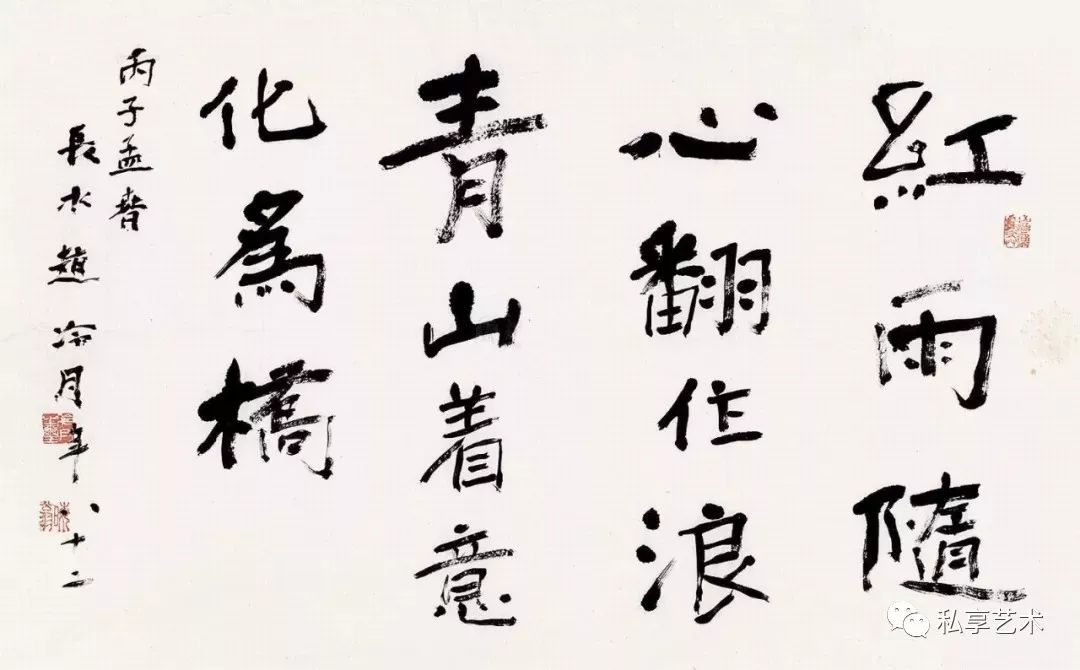 紅雨隨
心翻作浪
青山着意
化爲橋
丙子孟春
長水趙冷月年八十二
私享艺术